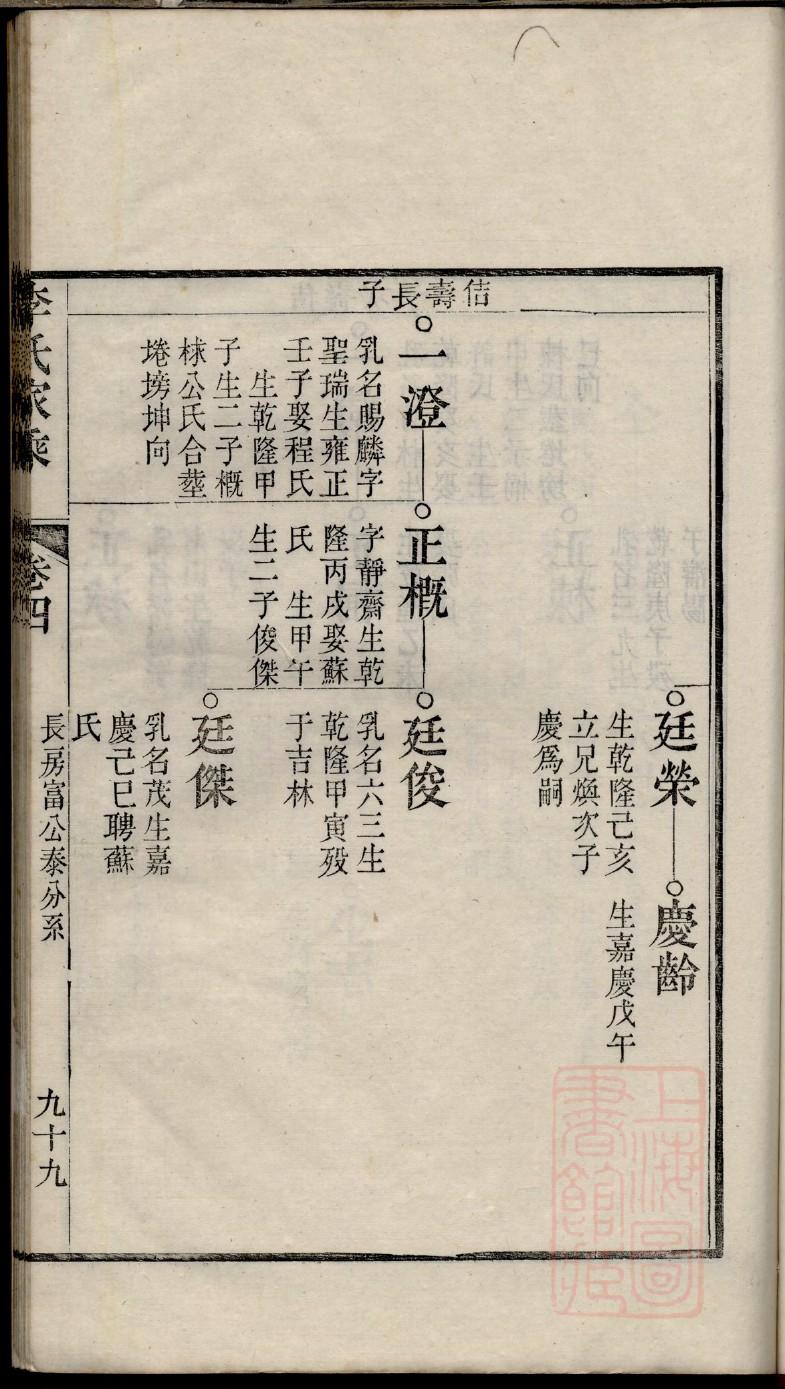 佶壽長子
廷榮
生乾隆己亥
立兄煥次子
慶爲嗣
慶齡
生嘉慶戊午
一澄
乳名賜麟字
聖瑞生雍正
壬子娶程氏
生乾隆甲
子生二子概
梂公氏合塟
埢塝坤向
正概
字靜齋生乾
隆丙戌娶蘇
氏　生甲午
生二子俊傑
廷俊
乳名六三生
乾隆甲寅歿
于吉林
廷傑
乳名茂生嘉
慶己巳聘蘇
氏
李氏家乘
卷四
長房富公泰分系
九十九
上海圖
書館藏